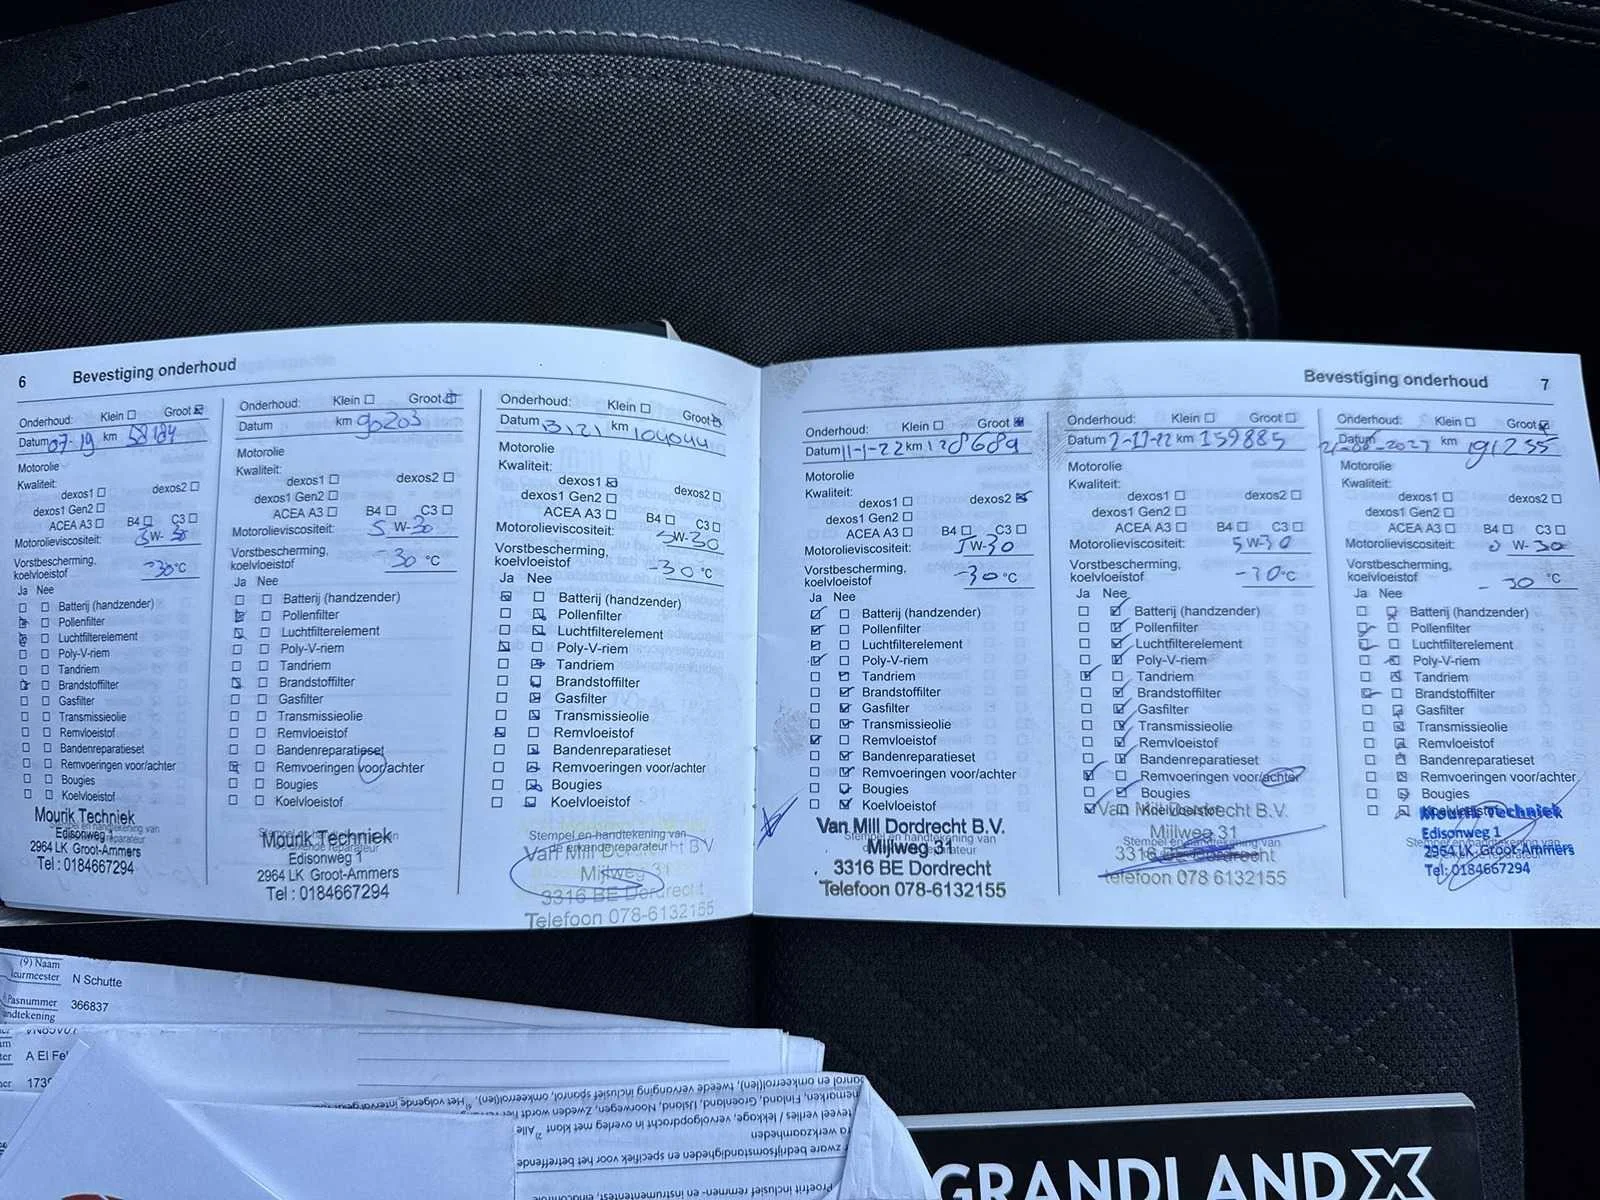 6 Bevestiging onderhoud
Onderhoud: Klein Groot
Datum 07-19 km 58184
Motorolie
Kwaliteit:
dexos1 dexos2
dexos1 Gen2
ACEA A3 B4 C3
Motorolieviscositeit: 5 W- 30
Vorstbescherming,
koelvloeistof -30 °C
Ja Nee
Batterij (handzender)
Pollenfilter
Luchtfilterelement
Poly-V-riem
Tandriem
Brandstoffilter
Gasfilter
Transmissieolie
Remvloeistof
Bandenreparatieset
Remvoeringen voor/achter
Bougies
Koelvloeistof
Mourik Techniek
Edisonweg 1
2964 LK Groot-Ammers
Tel : 0184667294
Onderhoud: Klein Groot
Datum km 90203
Motorolie
Kwaliteit:
dexos1 dexos2
dexos1 Gen2
ACEA A3 B4 C3
Motorolieviscositeit: 5 W-30
Vorstbescherming,
koelvloeistof -30 °C
Ja Nee
Batterij (handzender)
Pollenfilter
Luchtfilterelement
Poly-V-riem
Tandriem
Brandstoffilter
Gasfilter
Transmissieolie
Remvloeistof
Bandenreparatieset
Remvoeringen voor/achter
Bougies
Koelvloeistof
Mourik Techniek
Edisonweg 1
2964 LK Groot-Ammers
Tel : 0184667294
Onderhoud: Klein Groot
Datum 3,21 km 104044
Motorolie
Kwaliteit:
dexos1 dexos2
dexos1 Gen2
ACEA A3 B4 C3
Motorolieviscositeit: 5W-30
Vorstbescherming,
koelvloeistof -30 °C
Ja Nee
Batterij (handzender)
Pollenfilter
Luchtfilterelement
Poly-V-riem
Tandriem
Brandstoffilter
Gasfilter
Transmissieolie
Remvloeistof
Bandenreparatieset
Remvoeringen voor/achter
Bougies
Koelvloeistof
Stempel en handtekening van
de erkende reparateur
Van Mill Dordrecht B.V.
Mijlweg 31
3316 BE Dordrecht
Telefoon 078-6132155
Bevestiging onderhoud 7
Onderhoud: Klein Groot
Datum 11-1-22 km 128689
Motorolie
Kwaliteit:
dexos1 dexos2
dexos1 Gen2
ACEA A3 B4 C3
Motorolieviscositeit: 5 W-30
Vorstbescherming,
koelvloeistof -30 °C
Ja Nee
Batterij (handzender)
Pollenfilter
Luchtfilterelement
Poly-V-riem
Tandriem
Brandstoffilter
Gasfilter
Transmissieolie
Remvloeistof
Bandenreparatieset
Remvoeringen voor/achter
Bougies
Koelvloeistof
Van Mill Dordrecht B.V.
Mijlweg 31
3316 BE Dordrecht
Telefoon 078-6132155
Onderhoud: Klein Groot
Datum 2-11-22 km 159885
Motorolie
Kwaliteit:
dexos1 dexos2
dexos1 Gen2
ACEA A3 B4 C3
Motorolieviscositeit: 5W-30
Vorstbescherming,
koelvloeistof -30°C
Ja Nee
Batterij (handzender)
Pollenfilter
Luchtfilterelement
Poly-V-riem
Tandriem
Brandstoffilter
Gasfilter
Transmissieolie
Remvloeistof
Bandenreparatieset
Remvoeringen voor/achter
Bougies
Van Mill Dordrecht B.V.
Mijlweg 31
3316 BE Dordrecht
Telefoon 078 6132155
Onderhoud: Klein Groot
Datum km 191255
Motorolie
Kwaliteit:
dexos1 dexos2
dexos1 Gen2
ACEA A3 B4 C3
Motorolieviscositeit: 0 W-30
Vorstbescherming,
koelvloeistof -30 °C
Ja Nee
Batterij (handzender)
Pollenfilter
Luchtfilterelement
Poly-V-riem
Tandriem
Brandstoffilter
Gasfilter
Transmissieolie
Remvloeistof
Bandenreparatieset
Remvoeringen voor/achter
Bougies
Mourik Techniek
Edisonweg 1
2964 LK Groot-Ammers
Tel: 0184667294
(9) Naam
keurmeester N Schutte
Pasnummer 366837
A El
GRANDLAND X